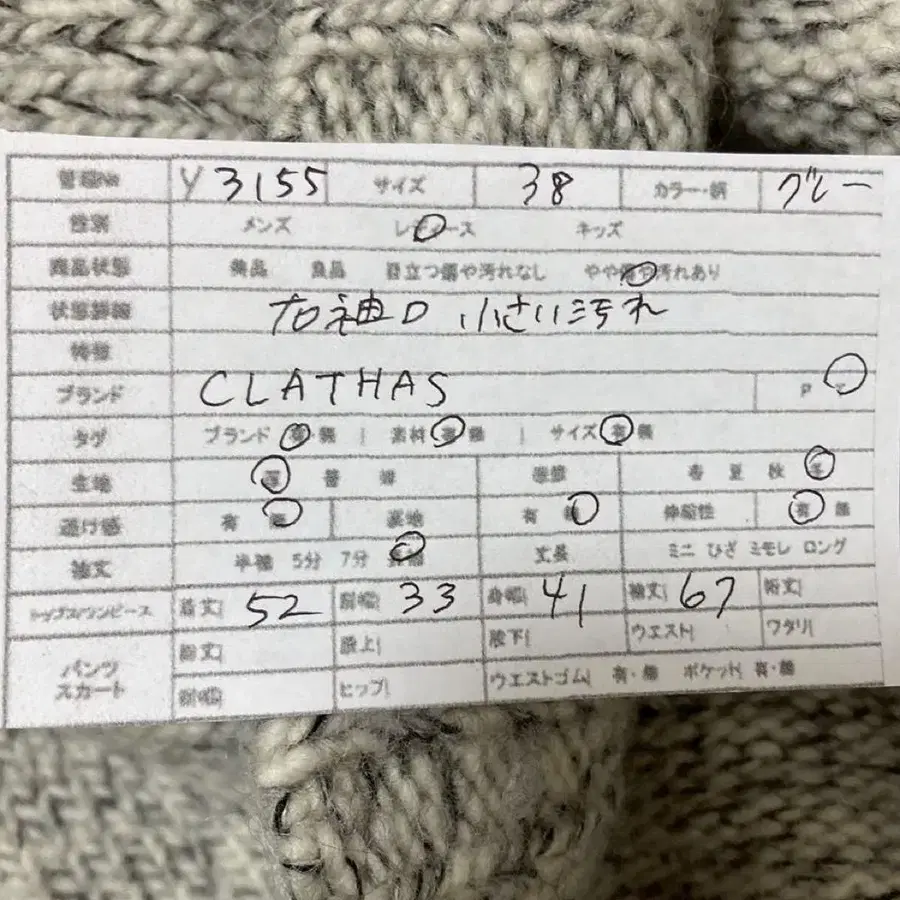 管理No Y3155 サイズ 38 カラー・柄 グレー
性別 メンズ レディース キッズ
商品状態 美品 良品 目立つ傷や汚れなし やや傷や汚れあり
状態詳細 右袖口 小さい汚れ
特徴
ブランド CLATHAS P
タグ ブランド 有・無 | 素材 有・無 | サイズ 有・無
生地 厚 普 薄 季節 春 夏 秋 冬
透け感 有 無 裏地 有 無 伸縮性 有 無
袖丈 半袖 5分 7分 長袖 丈長 ミニ ひざ ミモレ ロング
トップス/ワンピース 着丈| 52 肩幅| 33 身幅| 41 袖丈| 67 裄丈|
パンツ スカート 総丈| 股上| 股下| ウエスト| ワタリ|
裾幅| ヒップ| ウエストゴム| 有・無 ポケット| 有・無